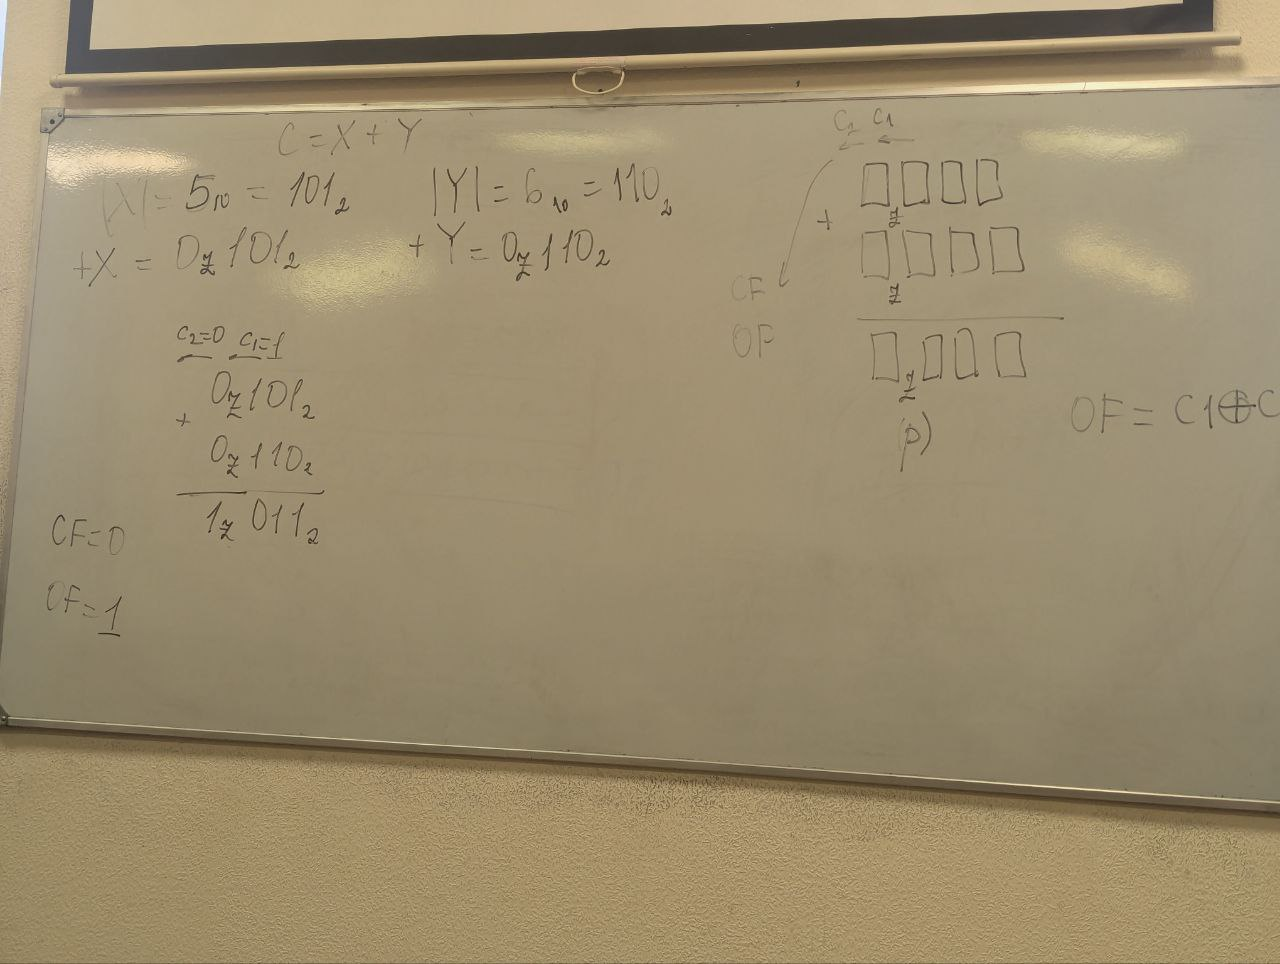 C = X + Y
|X| = 5₁₀ = 101₂ |Y| = 6₁₀ = 110₂
+X = 0z101₂ + Y = 0z110₂
c₂=0 c₁=1
0z101₂
+
0z110₂
1z011₂
CF=0
OF=1
C₂ C₁
z
+
z
CF
OF
z
(p)
OF = C1⊕C